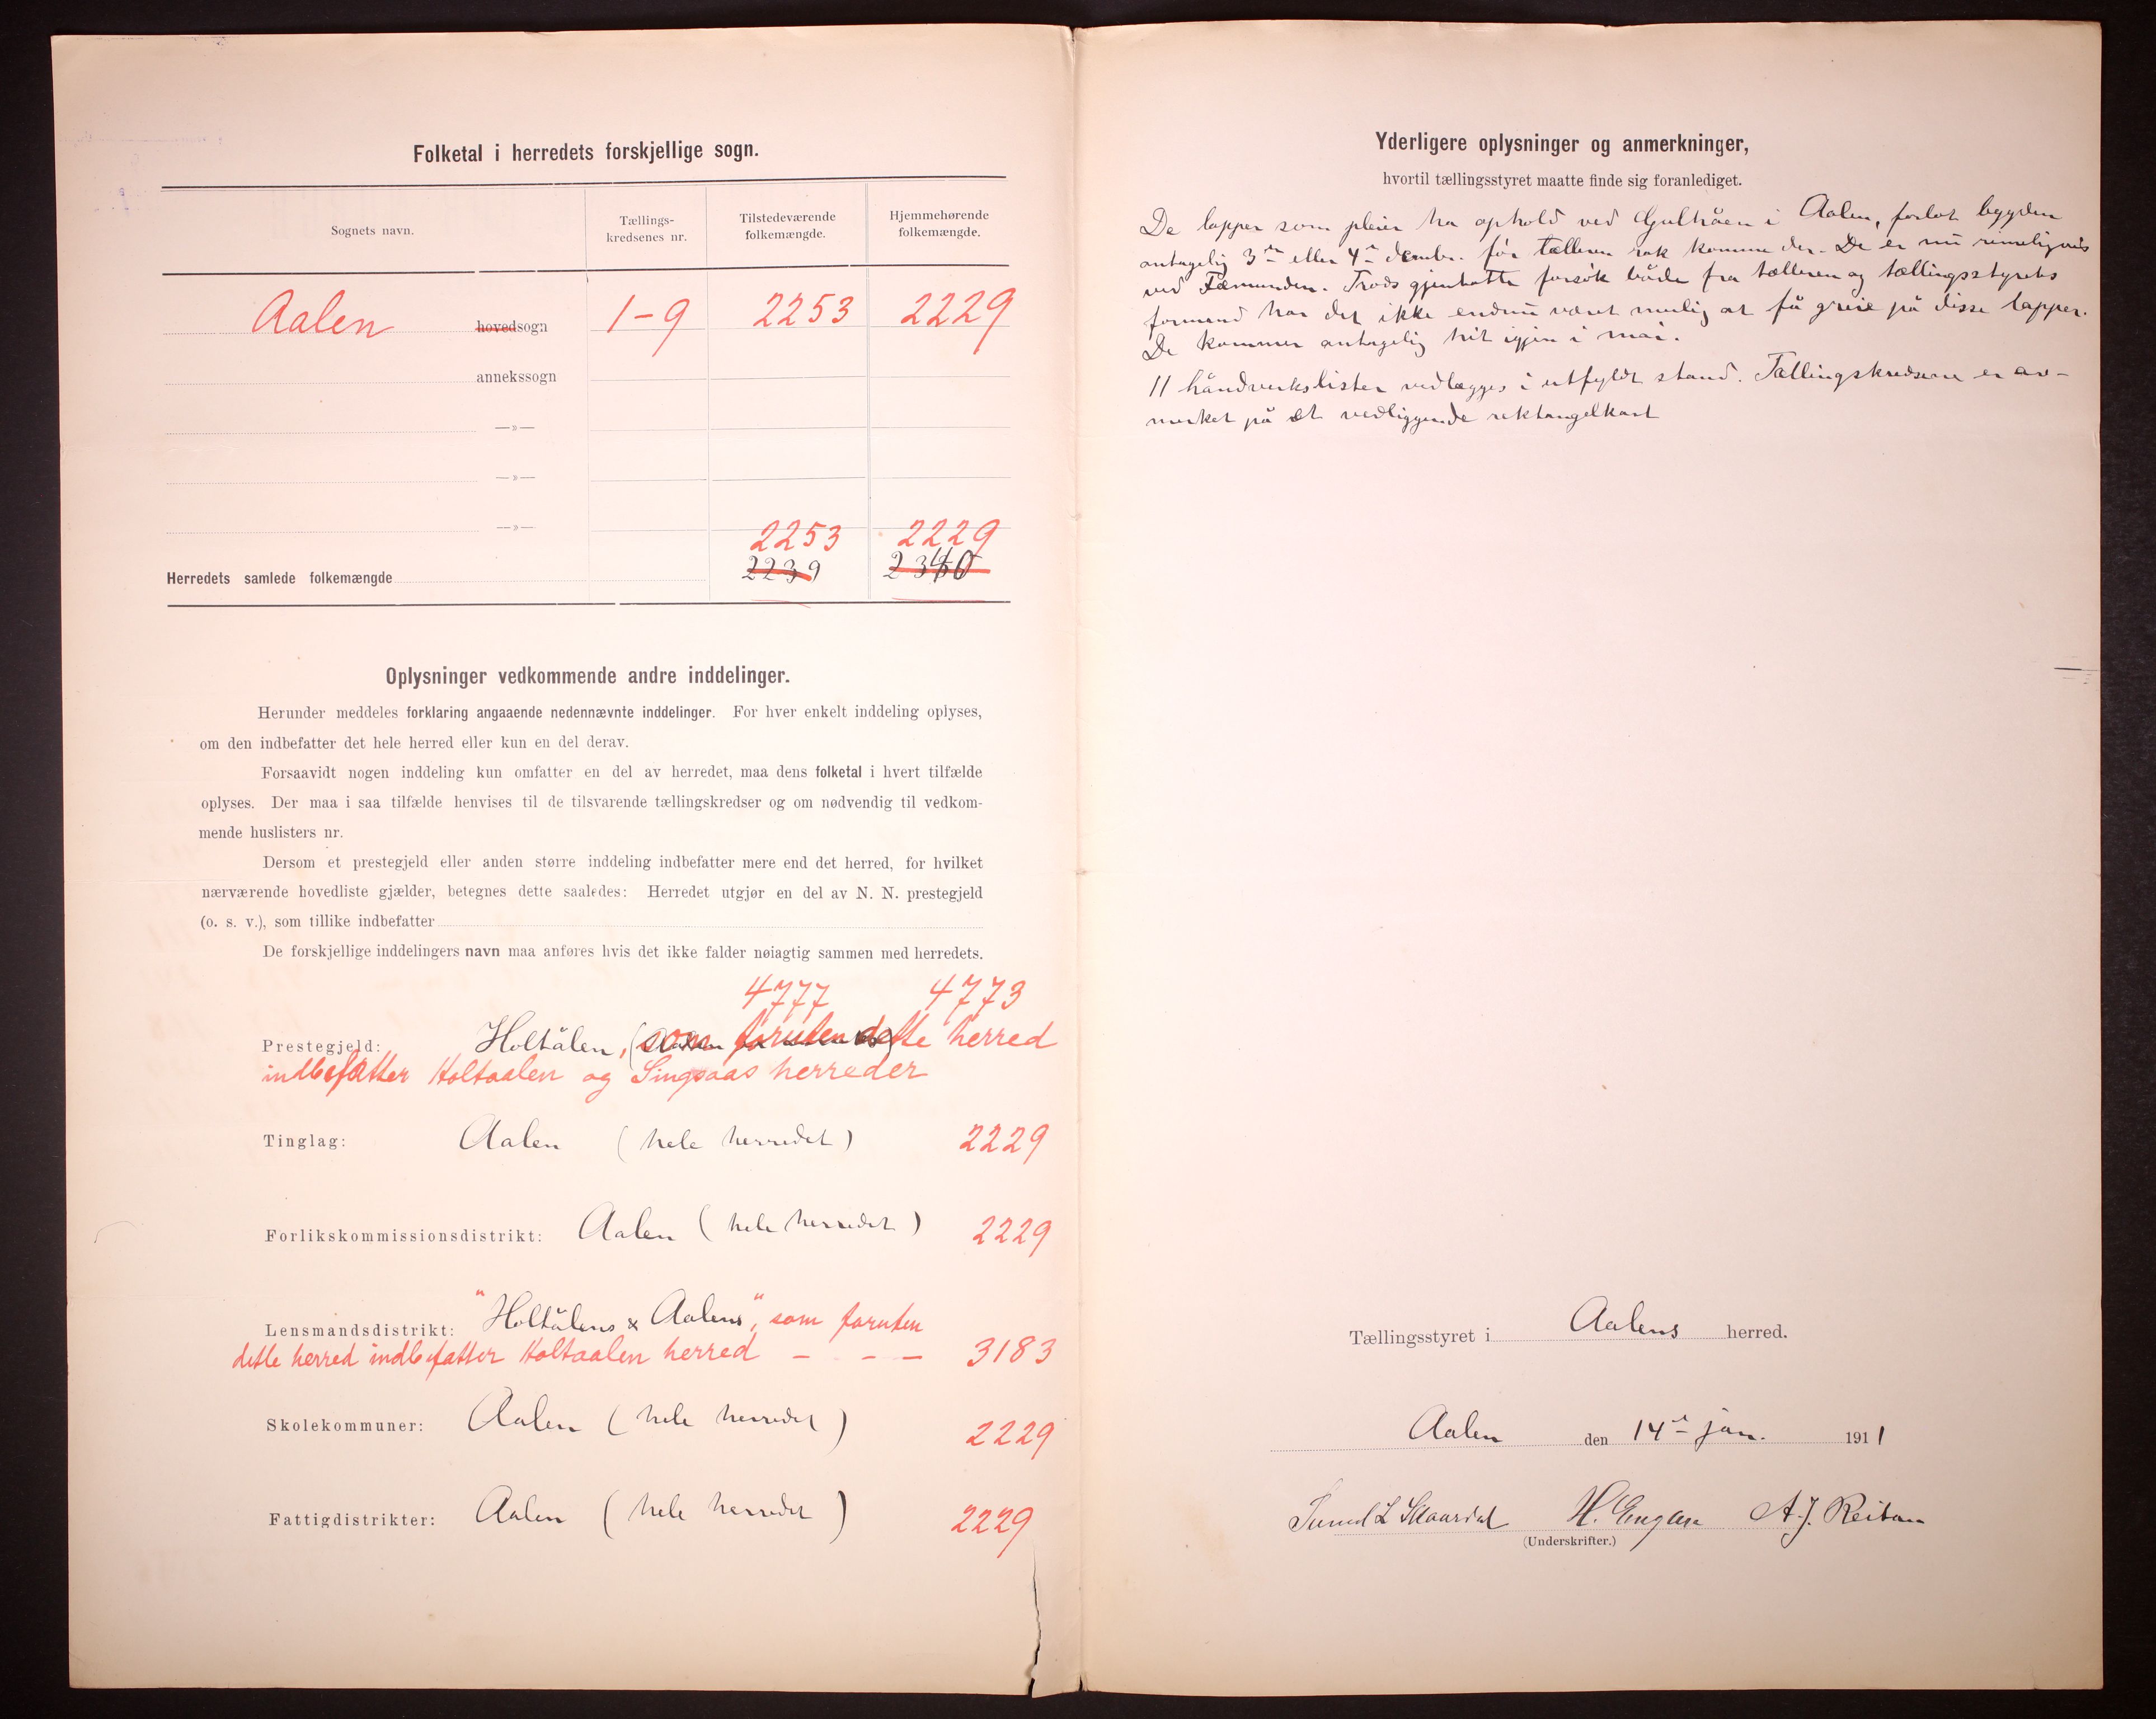 Folketal i herredets forskjellige sogn.
Sognets navn. Tællings-kredsenes nr. Tilstedeværende folkemængde. Hjemmehørende folkemængde.
Aalen hovedsogn 1-9 2253 2229
annekssogn
—»—
—»—
—»—
2253 2229
Herredets samlede folkemængde 2239 2340
Oplysninger vedkommende andre inddelinger.
Herunder meddeles forklaring angaaende nedennævnte inddelinger. For hver enkelt inddeling oplyses,
om den indbefatter det hele herred eller kun en del derav.
Forsaavidt nogen inddeling kun omfatter en del av herredet, maa dens folketal i hvert tilfælde
oplyses. Der maa i saa tilfælde henvises til de tilsvarende tællingskredser og om nødvendig til vedkom-
mende huslisters nr.
Dersom et prestegjeld eller anden større inddeling indbefatter mere end det herred, for hvilket
nærværende hovedliste gjælder, betegnes dette saaledes: Herredet utgjør en del av N. N. prestegjeld
(o. s. v.), som tillike indbefatter
De forskjellige inddelingers navn maa anføres hvis det ikke falder nøiagtig sammen med herredets.
4777 4773
Prestegjeld: Holtålen, som foruten dette herred
indbefatter Holtaalen og Singsaas herreder
Tinglag: Aalen (hele herredet) 2229
Forlikskommissionsdistrikt: Aalen (hele herredet) 2229
Lensmandsdistrikt: "Holtålens & Aalens", som foruten
dette herred indbefatter Holtaalen herred — - — 3183
Skolekommuner: Aalen (hele herredet) 2229
Fattigdistrikter: Aalen (hele herredet) 2229
Yderligere oplysninger og anmerkninger,
hvortil tællingsstyret maatte finde sig foranlediget.
De lapper som pleier ha ophold ved Gulhåen i Aalen, forlot bygden
antagelig 3die eller 4de dcembr. før tælleren rak komme der. De er nu rimeligvis
ved Fæmunden. Trods gjentatte forsøk både fra tælleren og tællingsstyrets
formand har det ikke endnu været mulig at få greie på disse lapper.
De kommer antagelig hit igjen i mai.
11 håndverkslister vedlægges i utfyldt stand. Tællingskredsene er av-
merket på et vedliggende rektangelkart
Tællingsstyret i Aalens herred.
Aalen den 14de jan. 1911
L Skaardal H. Engan A. J. Reitan
(Underskrifter.)